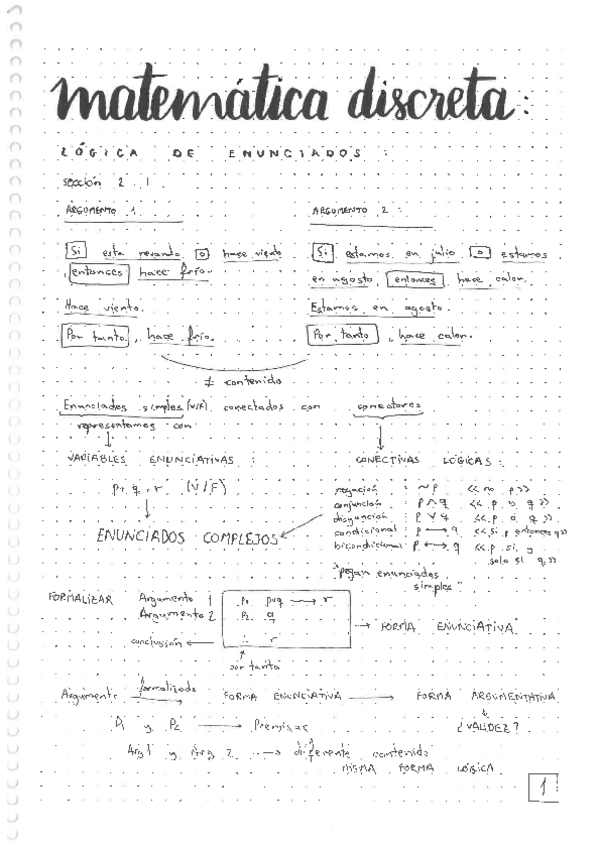 matemática discreta:
LÓGICA DE ENUNCIADOS :
sección 2.1.
ARGUMENTO 1
Si esta nevando o hace viento
, entonces hace frío.
Hace viento.
Por tanto, hace frío.
ARGUMENTO 2 :
Si estamos en julio o estamos
en agosto, entonces hace calor.
Estamos en agosto.
Por tanto, hace calor.
≠ contenido
Enunciados simples (V/F) conectados con conectores
representamos con
VARIABLES ENUNCIATIVAS :
p, q, r (V/F)
ENUNCIADOS COMPLEJOS
CONECTIVAS LÓGICAS :
negación : ~p << no p >>
conjunción : p ∧ q << p y q >>
disyunción : p ∨ q << p o q >>
condicional : p → q << si p entonces q >>
bicondicional : p ↔ q << p si y
solo si q >>
"pegan enunciados
simples"
FORMALIZAR Argumento 1
Argumento 2
P1 p∨q → r
P2 q
∴ r
conclusión ←
→ FORMA ENUNCIATIVA
por tanto
Argumento formalizado → FORMA ENUNCIATIVA → FORMA ARGUMENTATIVA
P1 y P2 → Premisas
¿VALIDEZ?
Arg 1 y Arg 2 → diferente contenido
MISMA FORMA LÓGICA
1